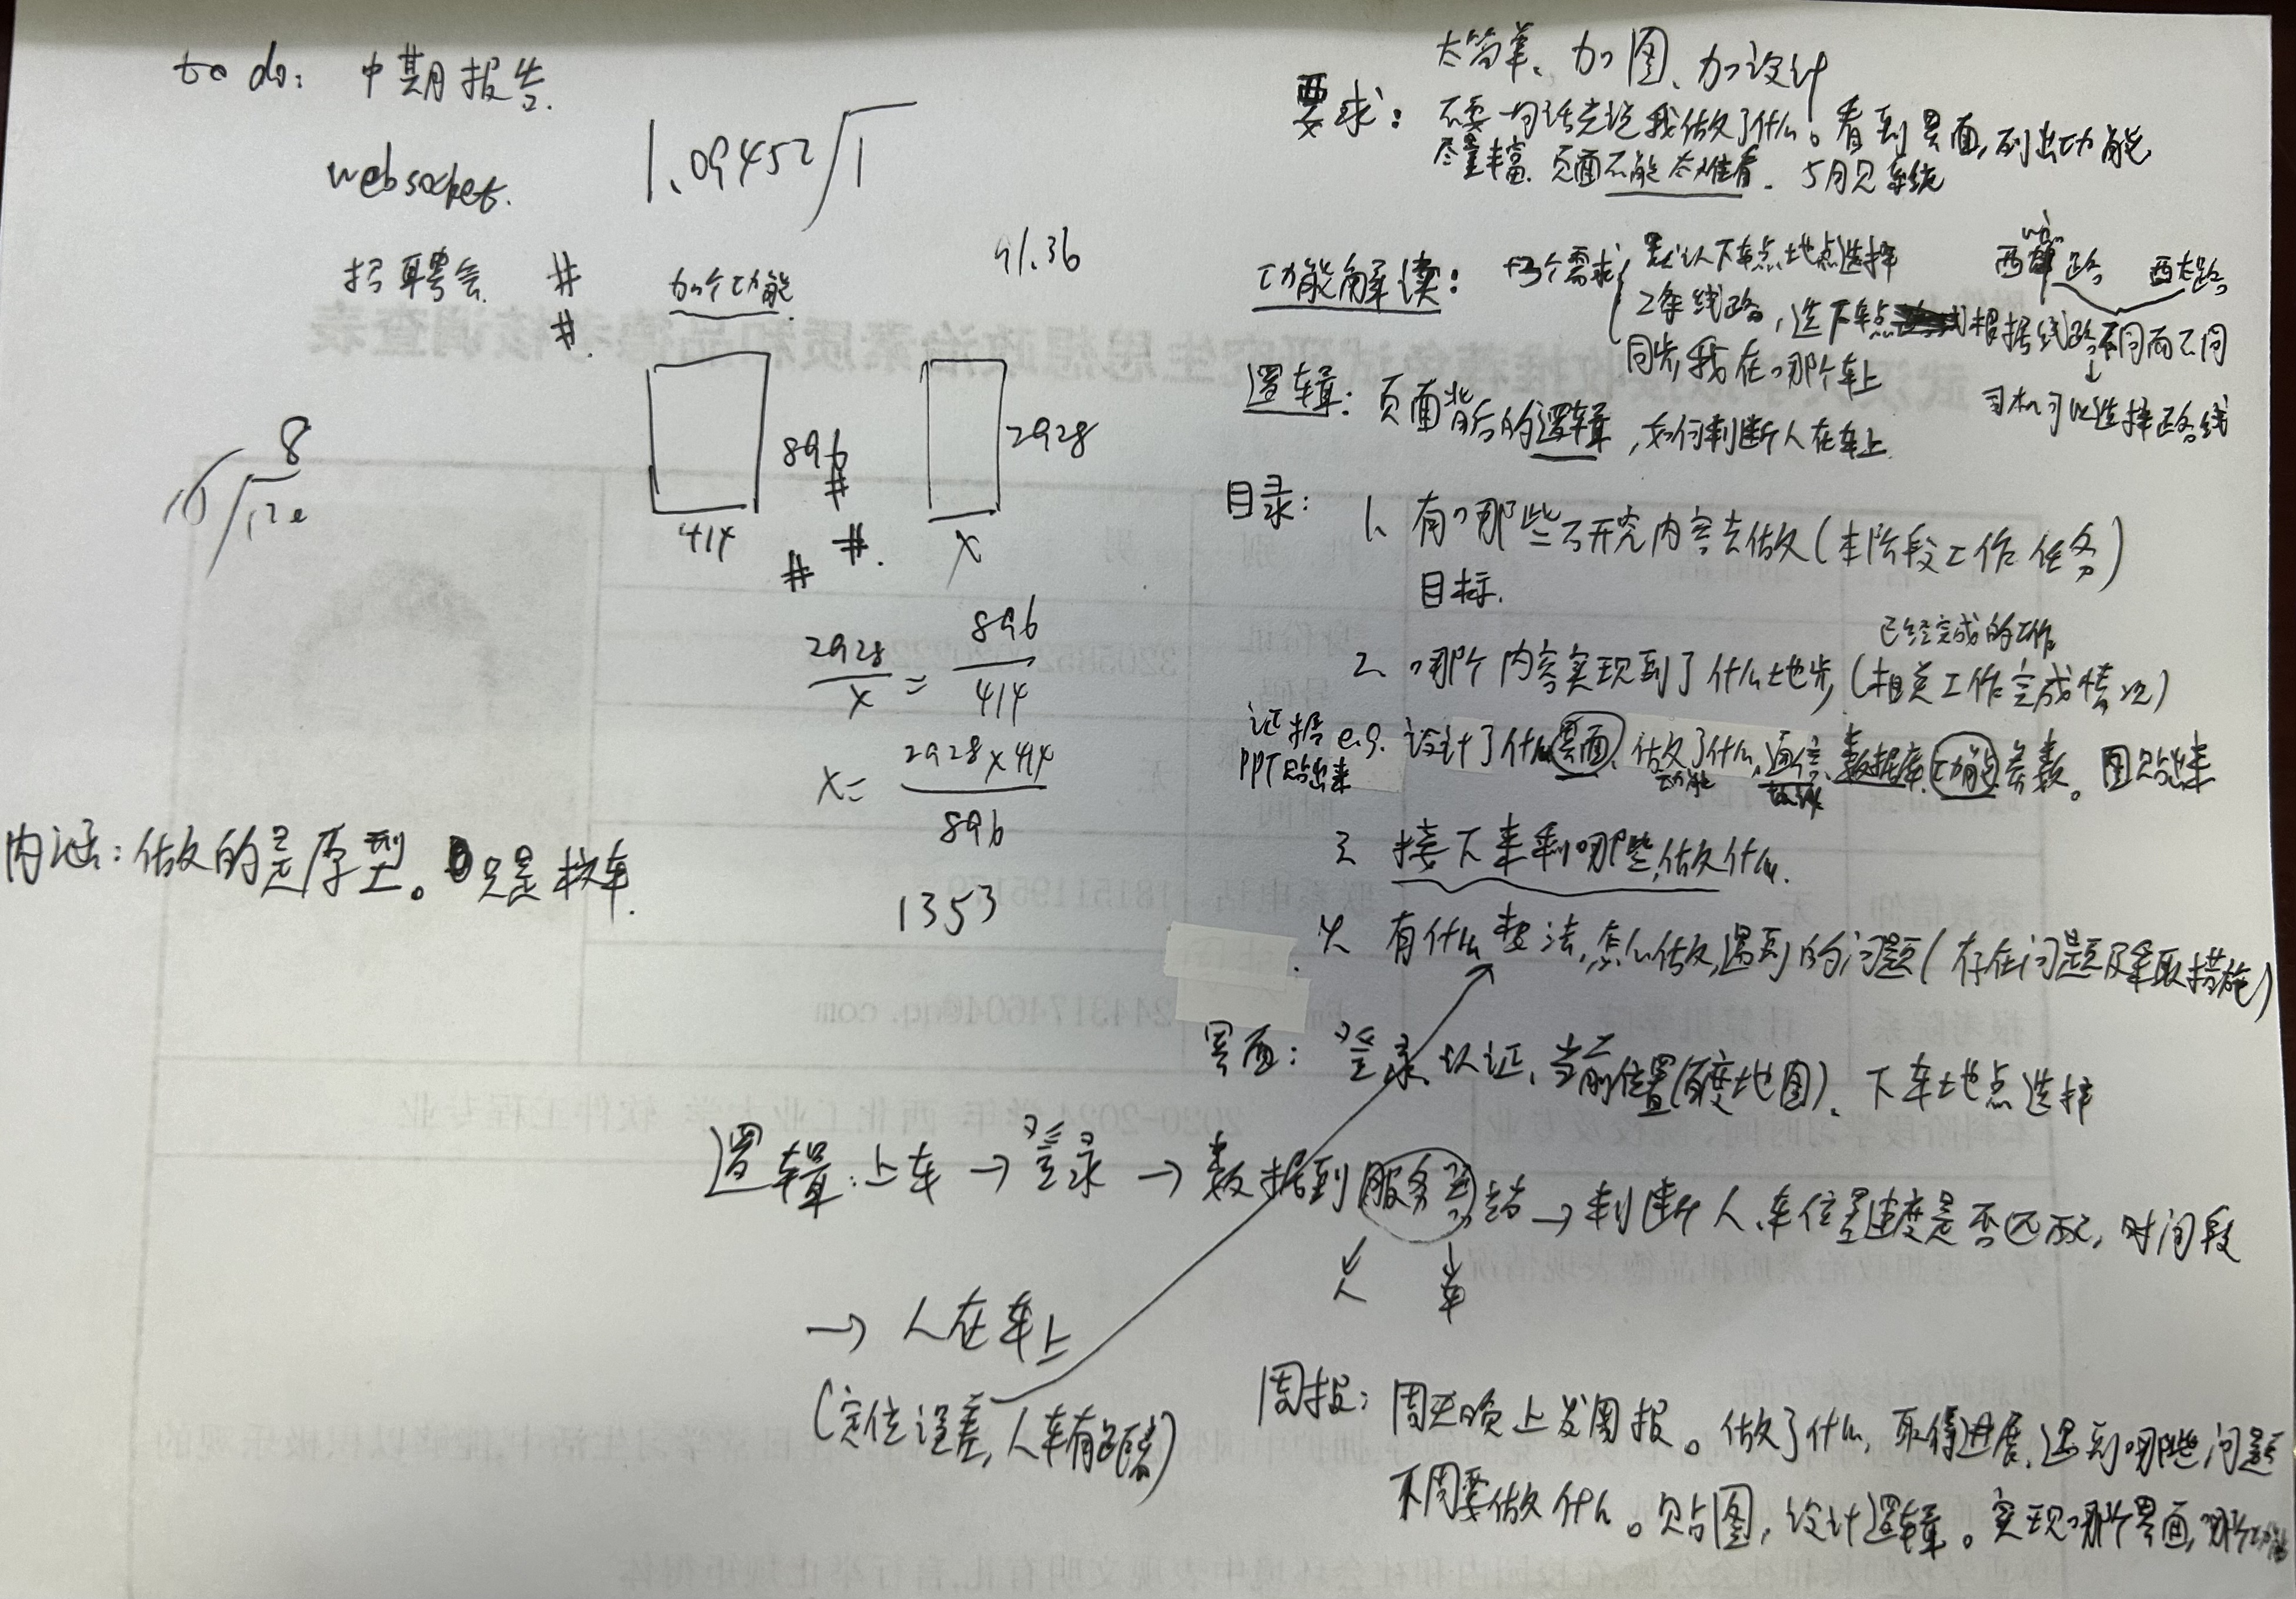 to do: 中期报告.
websocket.
招聘会 #
#.
1.09452 1
91.36
加个功能
896
#
414
#.
#
2928
x
8
16 12
2928/x = 896/414
x= 2928×414/896
1353
内涵:做的是原型。只是校车.
太简单、加图、加设计
要求: 不要一句话完说我做了什么。看到界面,列出功能
尽量丰富. 页面不能太难看. 5月见系统
功能解读: +3个需求 默认下车点地点选择
2条线路,选下车点 根据线路不同而不同
同步,我在哪个车上
西太路
司机可以选择路线
逻辑: 页面背后的逻辑,如何判断人在车上.
目录: 1. 有哪些研究内容去做(本阶段工作任务)
目标.
已经完成的工作
2. 哪个内容实现到了什么地步,(相关工作完成情况)
证据 e.g. 设计了什么界面、做了什么,通信、数据库、功能、参数。图贴出来
PPT贴出来 功能
3. 接下来剩哪些,做什么.
4. 有什么想法,怎么做,遇到的问题(存在问题及采取措施)
界面: 登录、认证、当前位置(百度地图)、下车地点选择
逻辑:上车→登录→数据到服务器端→判断人、车位置速度是否匹配,时间段
人 车
→ 人在车上
(定位误差,人车有距离)
周报: 周天晚上发周报。做了什么,取得进展,遇到哪些问题
下周要做什么。贴图,设计逻辑。实现哪个界面,哪个功能